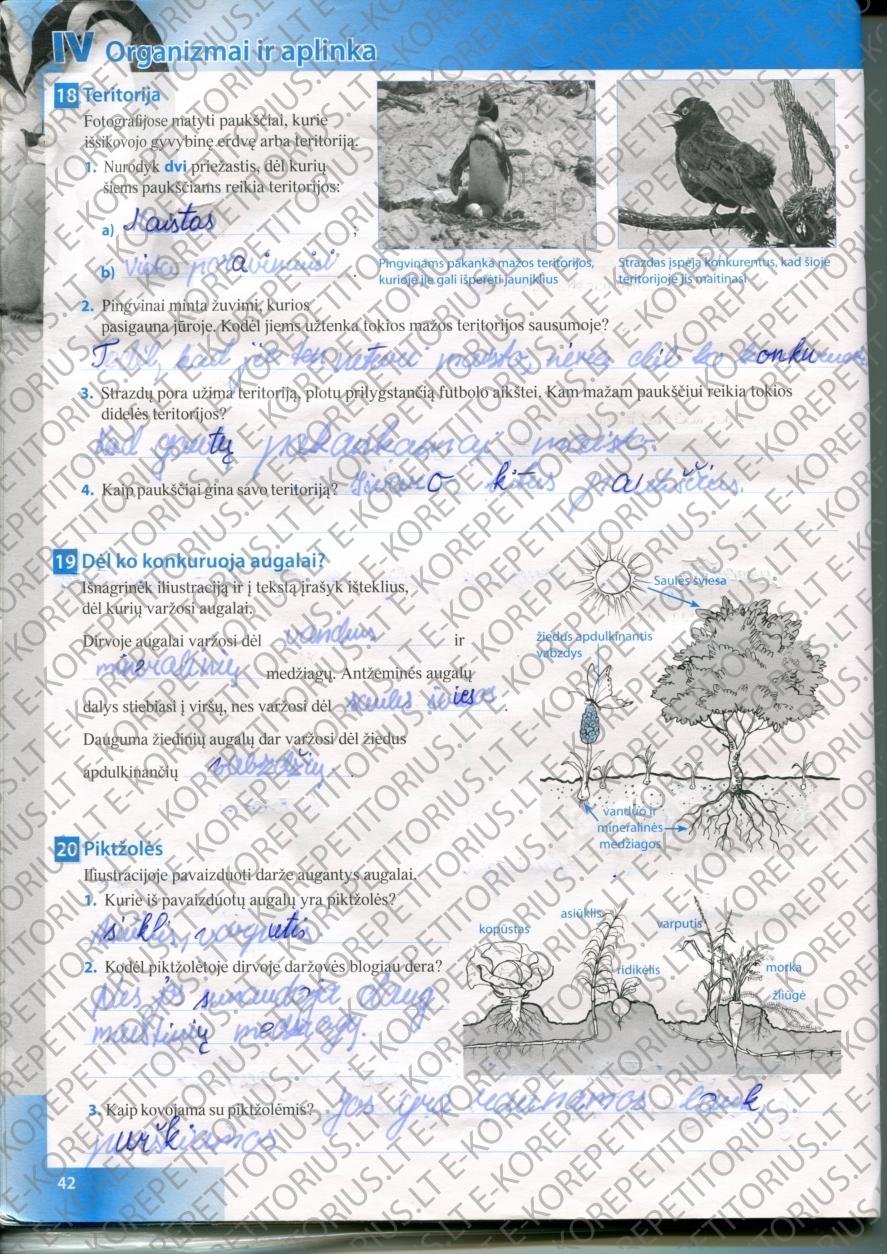 IV Organizmai ir aplinka
18 Teritorija
Fotografijose matyti paukščiai, kurie
išsikovojo gyvybinę erdvę arba teritoriją.
1. Nurodyk dvi priežastis, dėl kurių
šiems paukščiams reikia teritorijos:
a) Maistas ,
b) Vieta poravimuisi .
Pingvinams pakanka mažos teritorijos,
kurioje jie gali išperėti jauniklius
Strazdas įspėja konkurentus, kad šioje
teritorijoje jis maitinasi
2. Pingvinai minta žuvimi, kurios
pasigauna jūroje. Kodėl jiems užtenka tokios mažos teritorijos sausumoje?
Todėl, kad jie ten neturi maisto, nėra dėl ko
3. Strazdų pora užima teritoriją, plotu prilygstančią futbolo aikštei. Kam mažam paukščiui reikia tokios
didelės teritorijos?
Kad gautų pakankamai maisto.
4. Kaip paukščiai gina savo teritoriją? kitus paukščius.
19 Dėl ko konkuruoja augalai?
Išnagrinėk iliustraciją ir į tekstą įrašyk išteklius,
dėl kurių varžosi augalai.
Dirvoje augalai varžosi dėl vandens ir
mineralinių medžiagų. Antžeminės augalų
dalys stiebiasi į viršų, nes varžosi dėl saulės šviesos .
Dauguma žiedinių augalų dar varžosi dėl žiedus
apdulkinančių vabzdžių .
Saulės šviesa
žiedus apdulkinantis
vabzdys
vanduo ir
mineralinės
medžiagos
20 Piktžolės
Iliustracijoje pavaizduoti darže augantys augalai.
1. Kurie iš pavaizduotų augalų yra piktžolės?
asiūklis, varputis
2. Kodėl piktžolėtoje dirvoje daržovės blogiau dera?
Nes jos sunaudoja daug
maistinių medžiagų.
kopūstas
asiūklis
ridikėlis
varputis
morka
žliūgė
3. Kaip kovojama su piktžolėmis? Jos yra raunamos lauk,
purškiamos
42
E-KOREPETITORIUS.LT